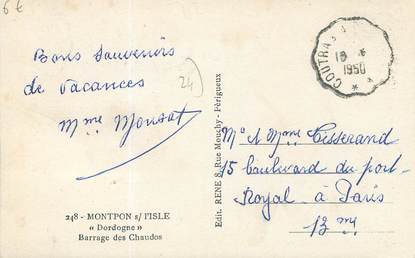 6 €
Bons Souvenirs
de Vacances
24
Mme Monsat
248 - MONTPON s/ l'ISLE
« Dordogne »
Barrage des Chaudos
Edit. RENE 8, Rue Mouchy - Périgueux
COUTRAS
18
1950
Mr et Mme Tisserand
15 boulevard du port-
Royal à Paris
13me